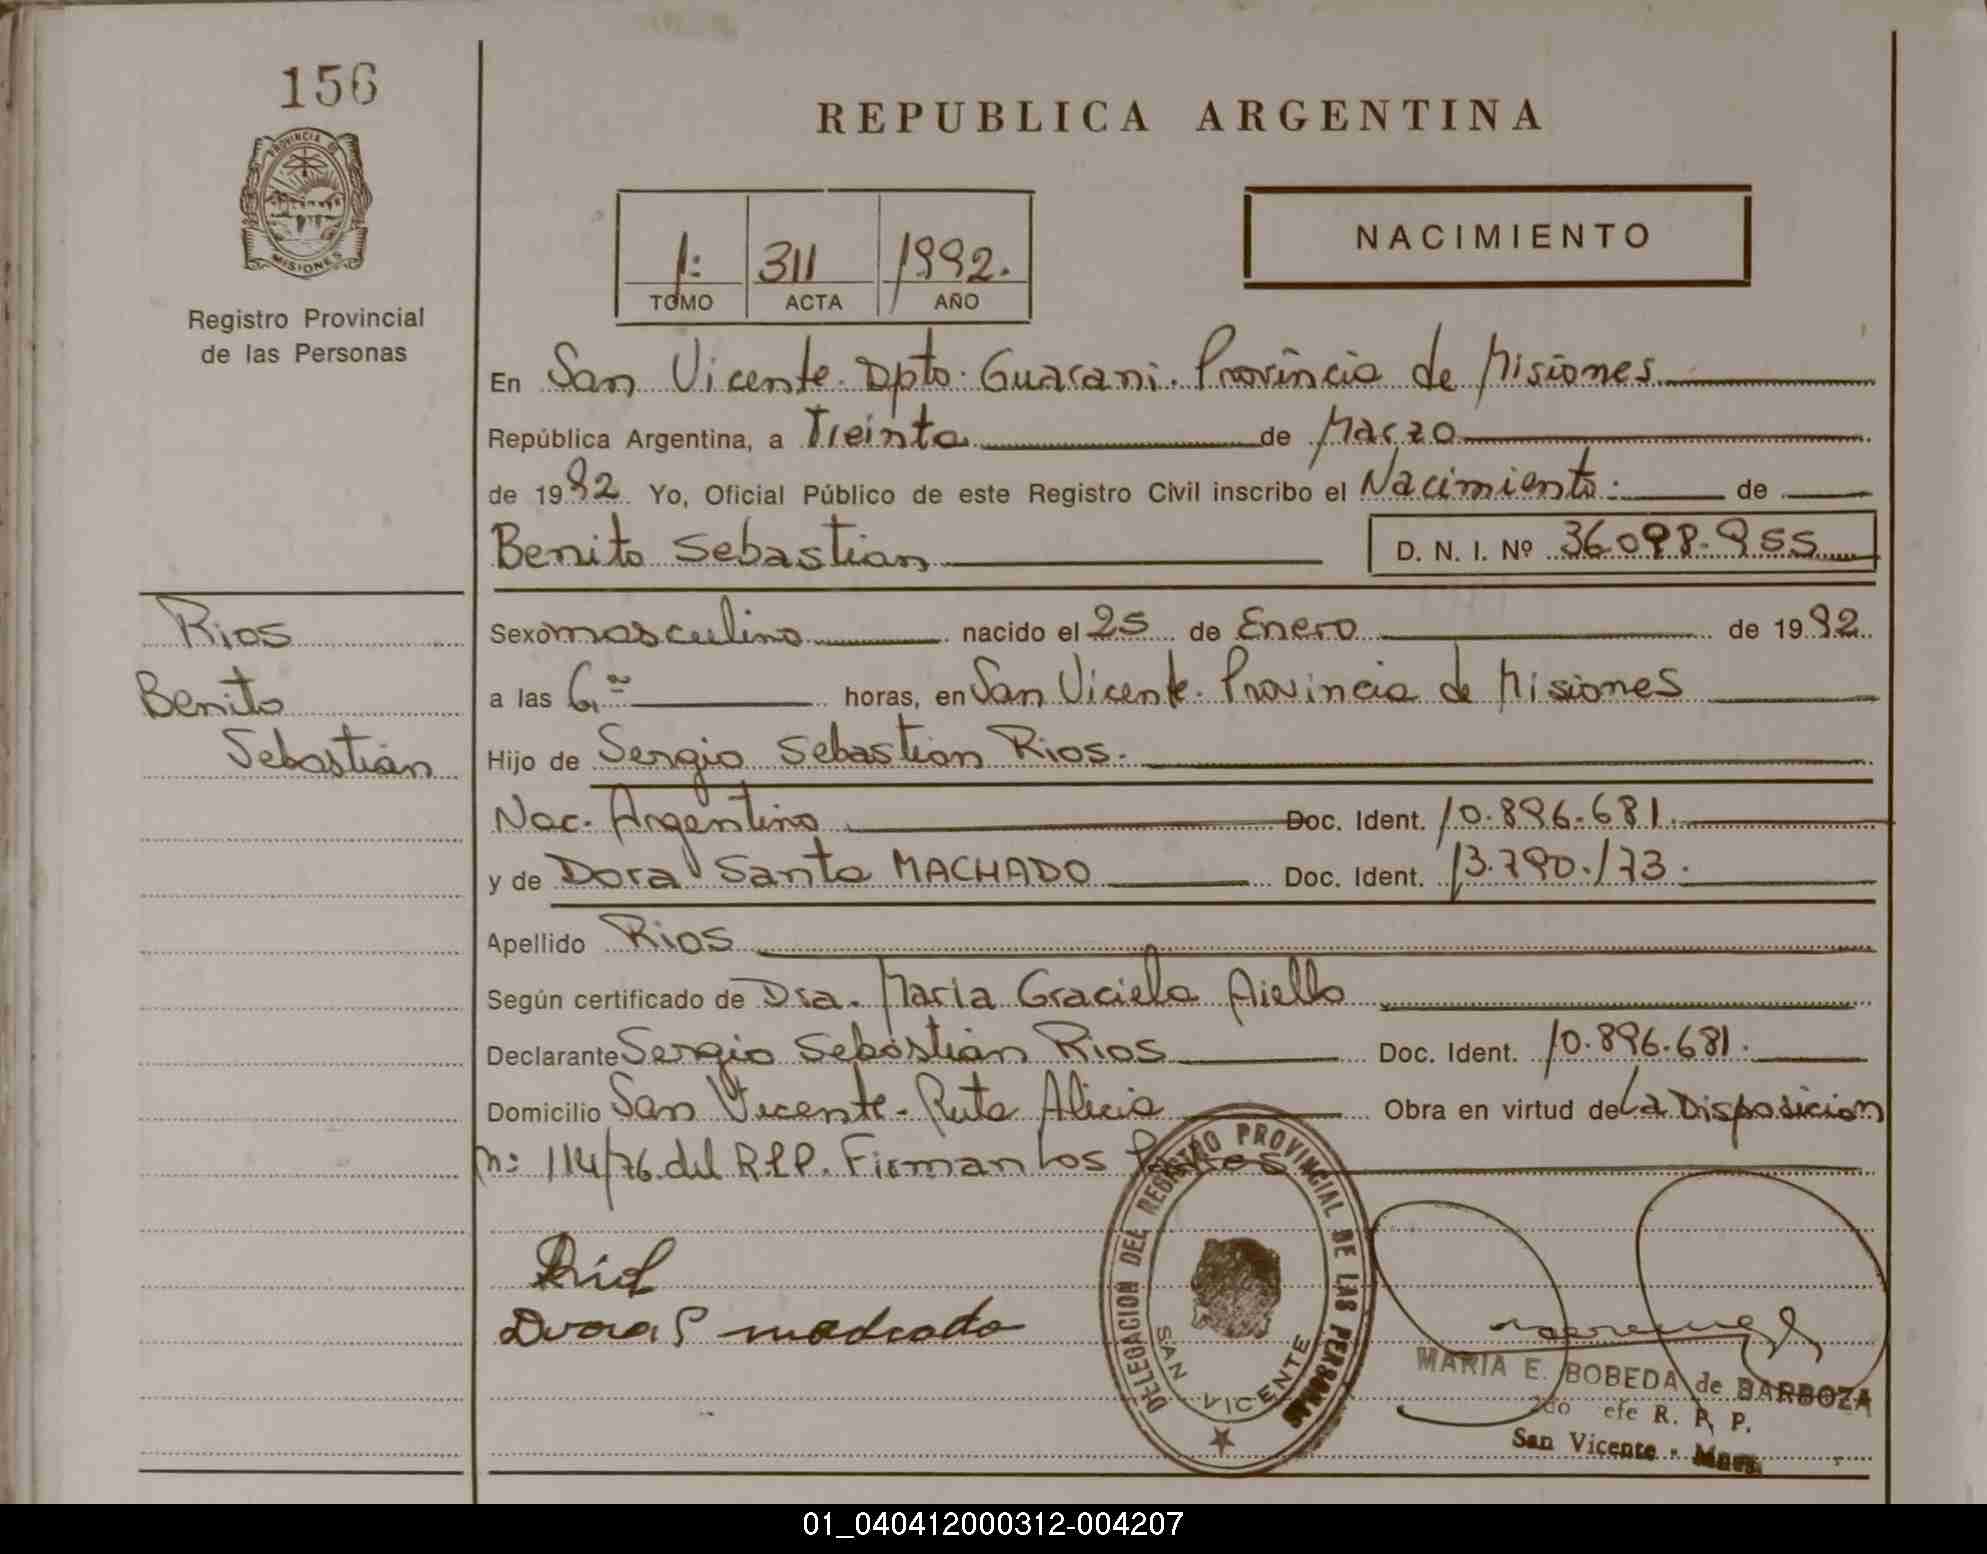 156
PROVINCIA DE
MISIONES
Registro Provincial
de las Personas
REPUBLICA ARGENTINA
1: 311 1992.
TOMO ACTA AÑO
NACIMIENTO
En San Vicente. Dpto. Guarani. Provincia de Misiones
República Argentina, a Treinta de Marzo
de 1992. Yo, Oficial Público de este Registro Civil inscribo el Nacimiento: de
Benito Sebastian D. N. I. Nº 36.098.955
Rios
Benito
Sebastián
Sexo masculino nacido el 25 de Enero de 1992.
a las 6, horas, en San Vicente. Provincia de Misiones
Hijo de Sergio Sebastian Rios.
Nac. Argentino Doc. Ident. 10.896.681.
y de Dora Santa MACHADO Doc. Ident. 13.790.173.
Apellido Rios
Según certificado de Dra. Maria Graciela Aiello
Declarante Sergio Sebastián Rios Doc. Ident. 10.896.681.
Domicilio San Vicente - Ruta Alicia Obra en virtud de La Disposicion
n: 114/76 del R.P.P. Firman los Padres
Dora S machado
DELEGACION DEL REGISTRO PROVINCIAL DE LAS PERSONAS
SAN VICENTE
MARIA E. BOBEDA de BARBOZA
2do efe R. P. P.
San Vicente - Mnes.
01_040412000312-004207